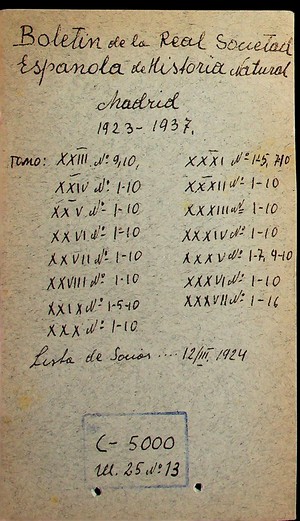 Boletin de la Real Societad
Espanola de Historia Natural
Madrid
1923-1937,
Tomo: XXIII № 9,10,
XXIV № 1-10
XXV № 1-10
XXVI № 1-10
XXVII № 1-10
XXVIII № 1-10
XXIX № 1-5-10
XXX № 1-10
XXXI № 1-5, 7-10
XXXII № 1-10
XXXIII № 1-10
XXXIV № 1-10
XXXV № 1-7, 9-10
XXXVI № 1-10
XXXVII № 1-16
Lista de Socios .... 12/III, 1924
C- 5000
25 № 13